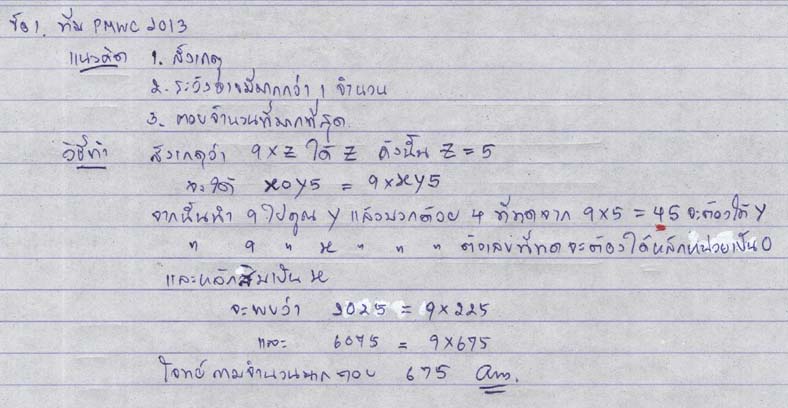 ข้อ 1. ทีม PMWC 2013
แนวคิด 1. สังเกต
2. ระวังอาจมีมากกว่า 1 จำนวน
3. ตอบจำนวนที่มากที่สุด
วิธีทำ สังเกตว่า 9×Z ได้ Z ดังนั้น Z = 5
จะได้ x0y5 = 9×xy5
จากนั้นนำ 9 ไปคูณ y แล้วบวกด้วย 4 ที่ทดจาก 9×5 = 45 จะต้องได้ y
" 9 " x " " " ตัวเลขที่ทดจะต้องได้หลักหน่วยเป็น 0
และหลักสิบเป็น x
จะพบว่า 2025 = 9×225
และ 6075 = 9×675
โจทย์ถามจำนวนมาก ตอบ 675 Ans.